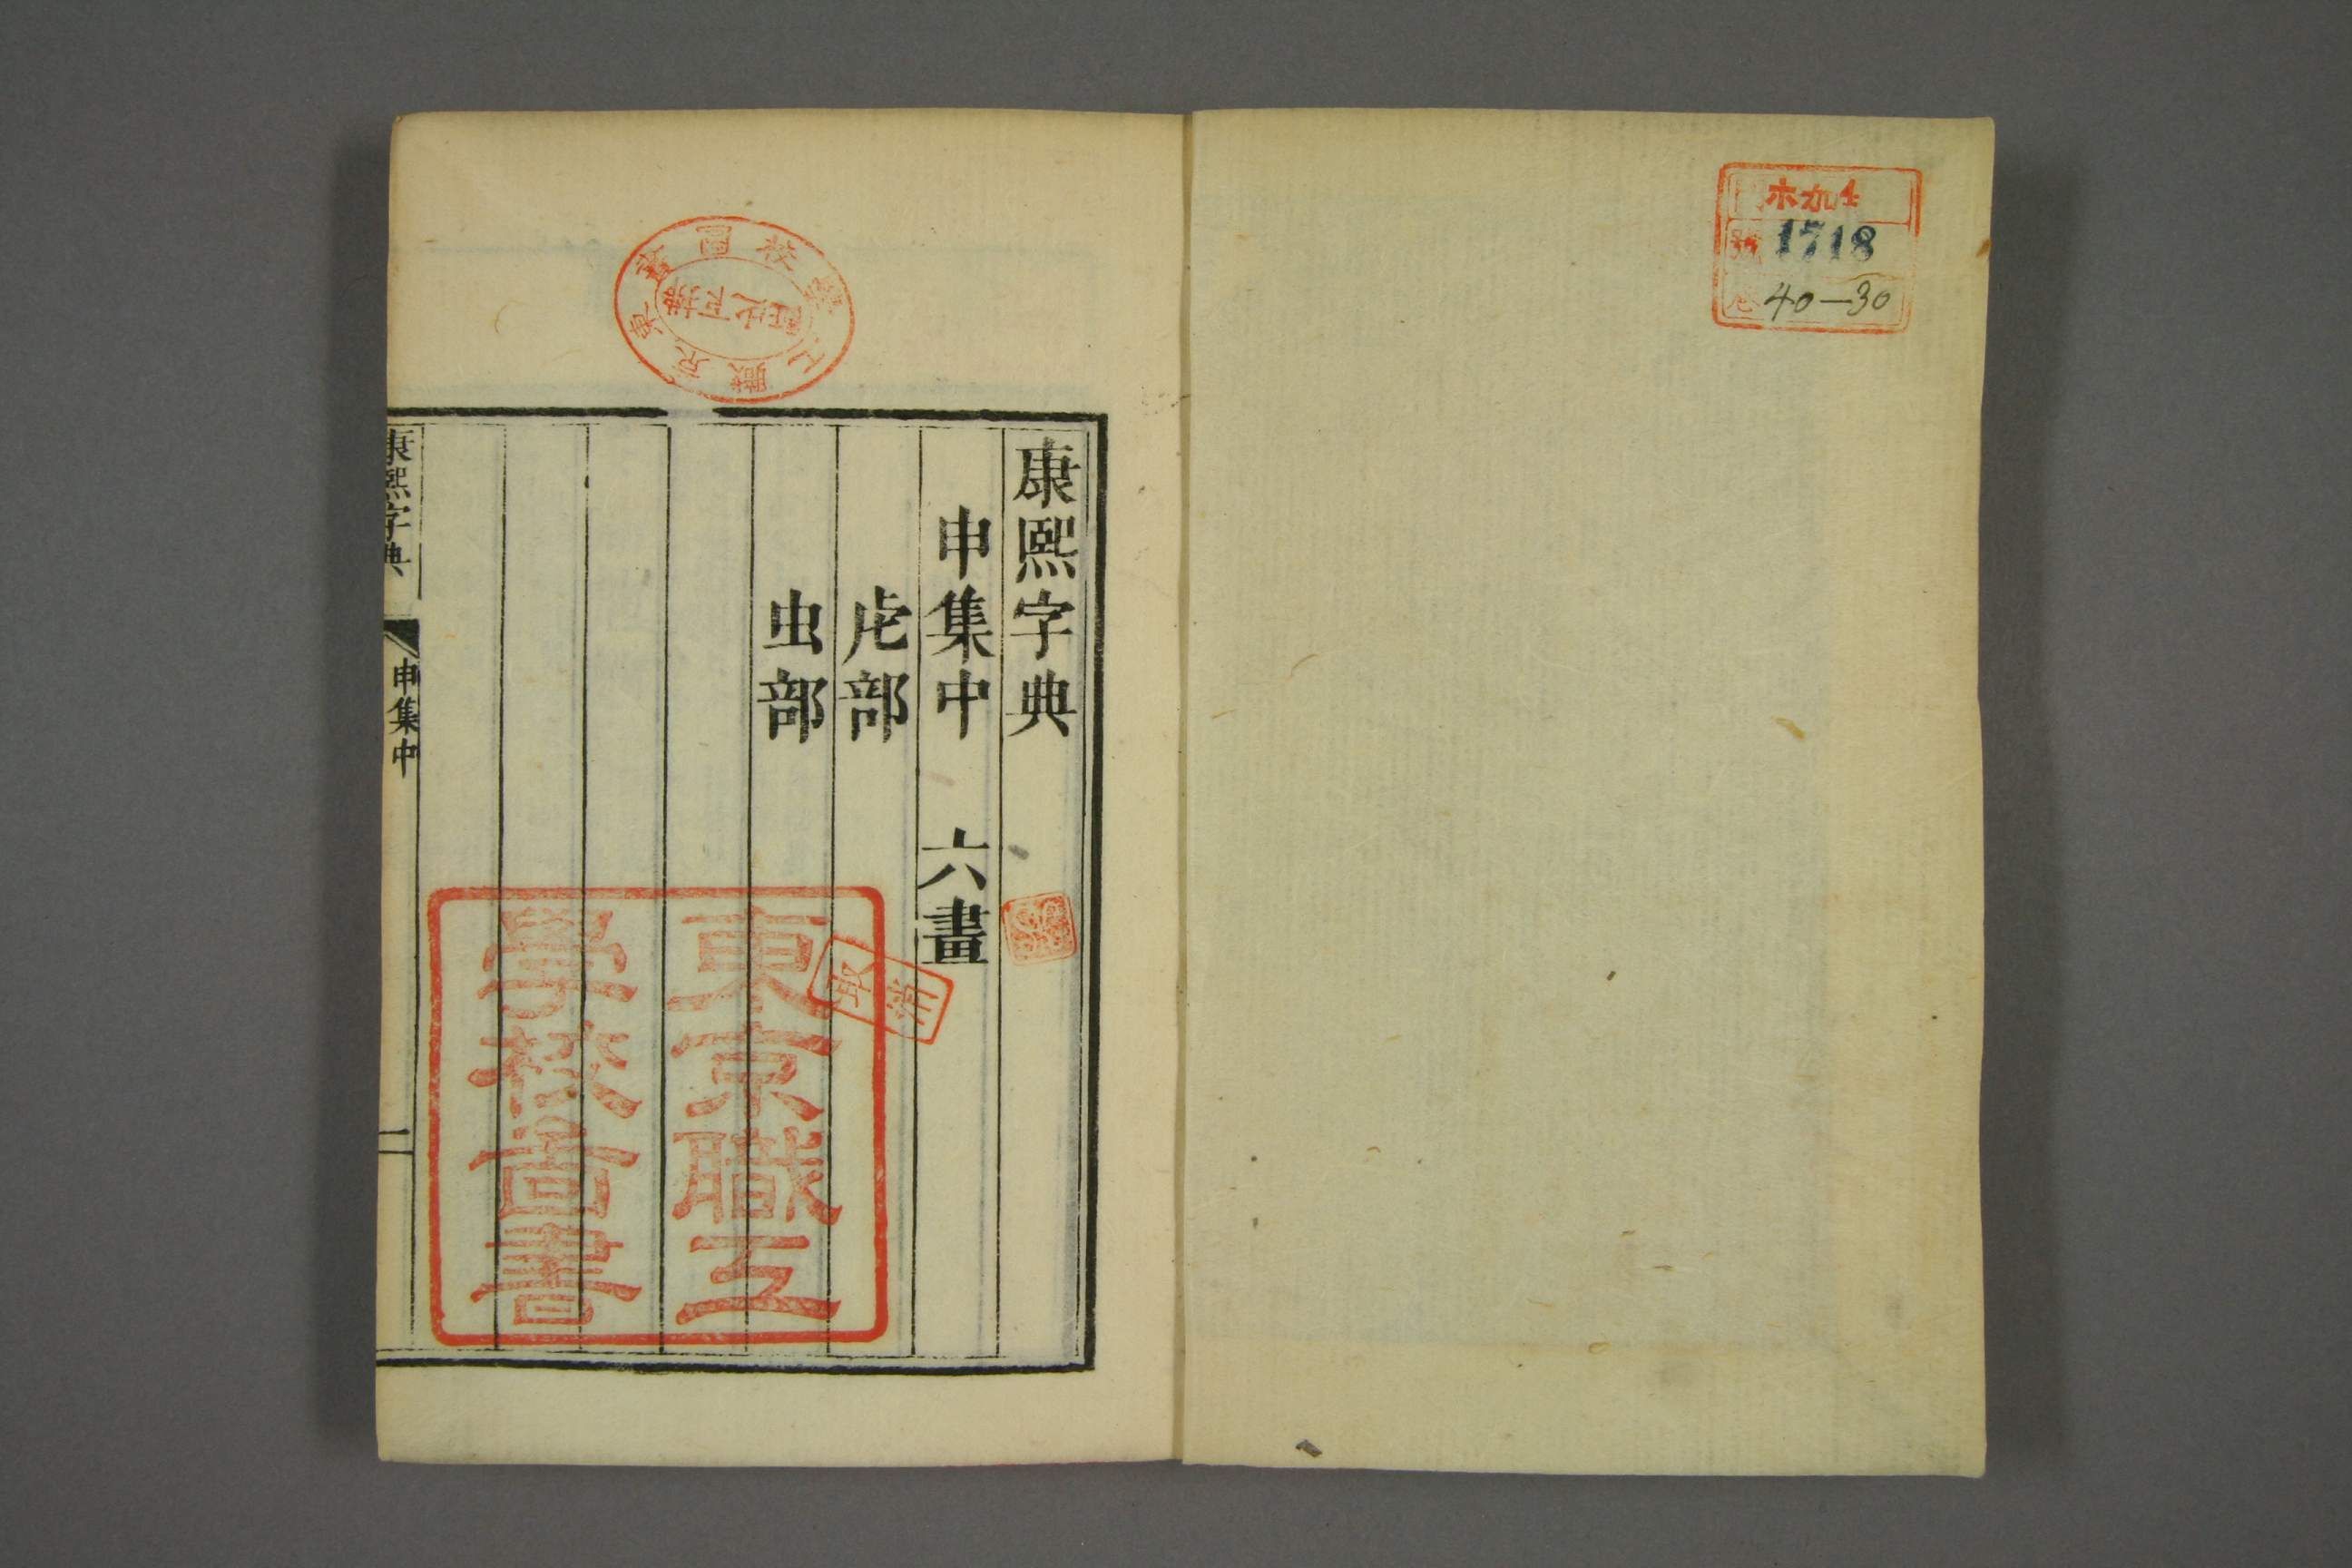 ホカ4
號 1718
40—30
康熙字典
申集中 六畫
虍部
虫部
東京職工
學校圖書
取消
康熙字典
申集中
一